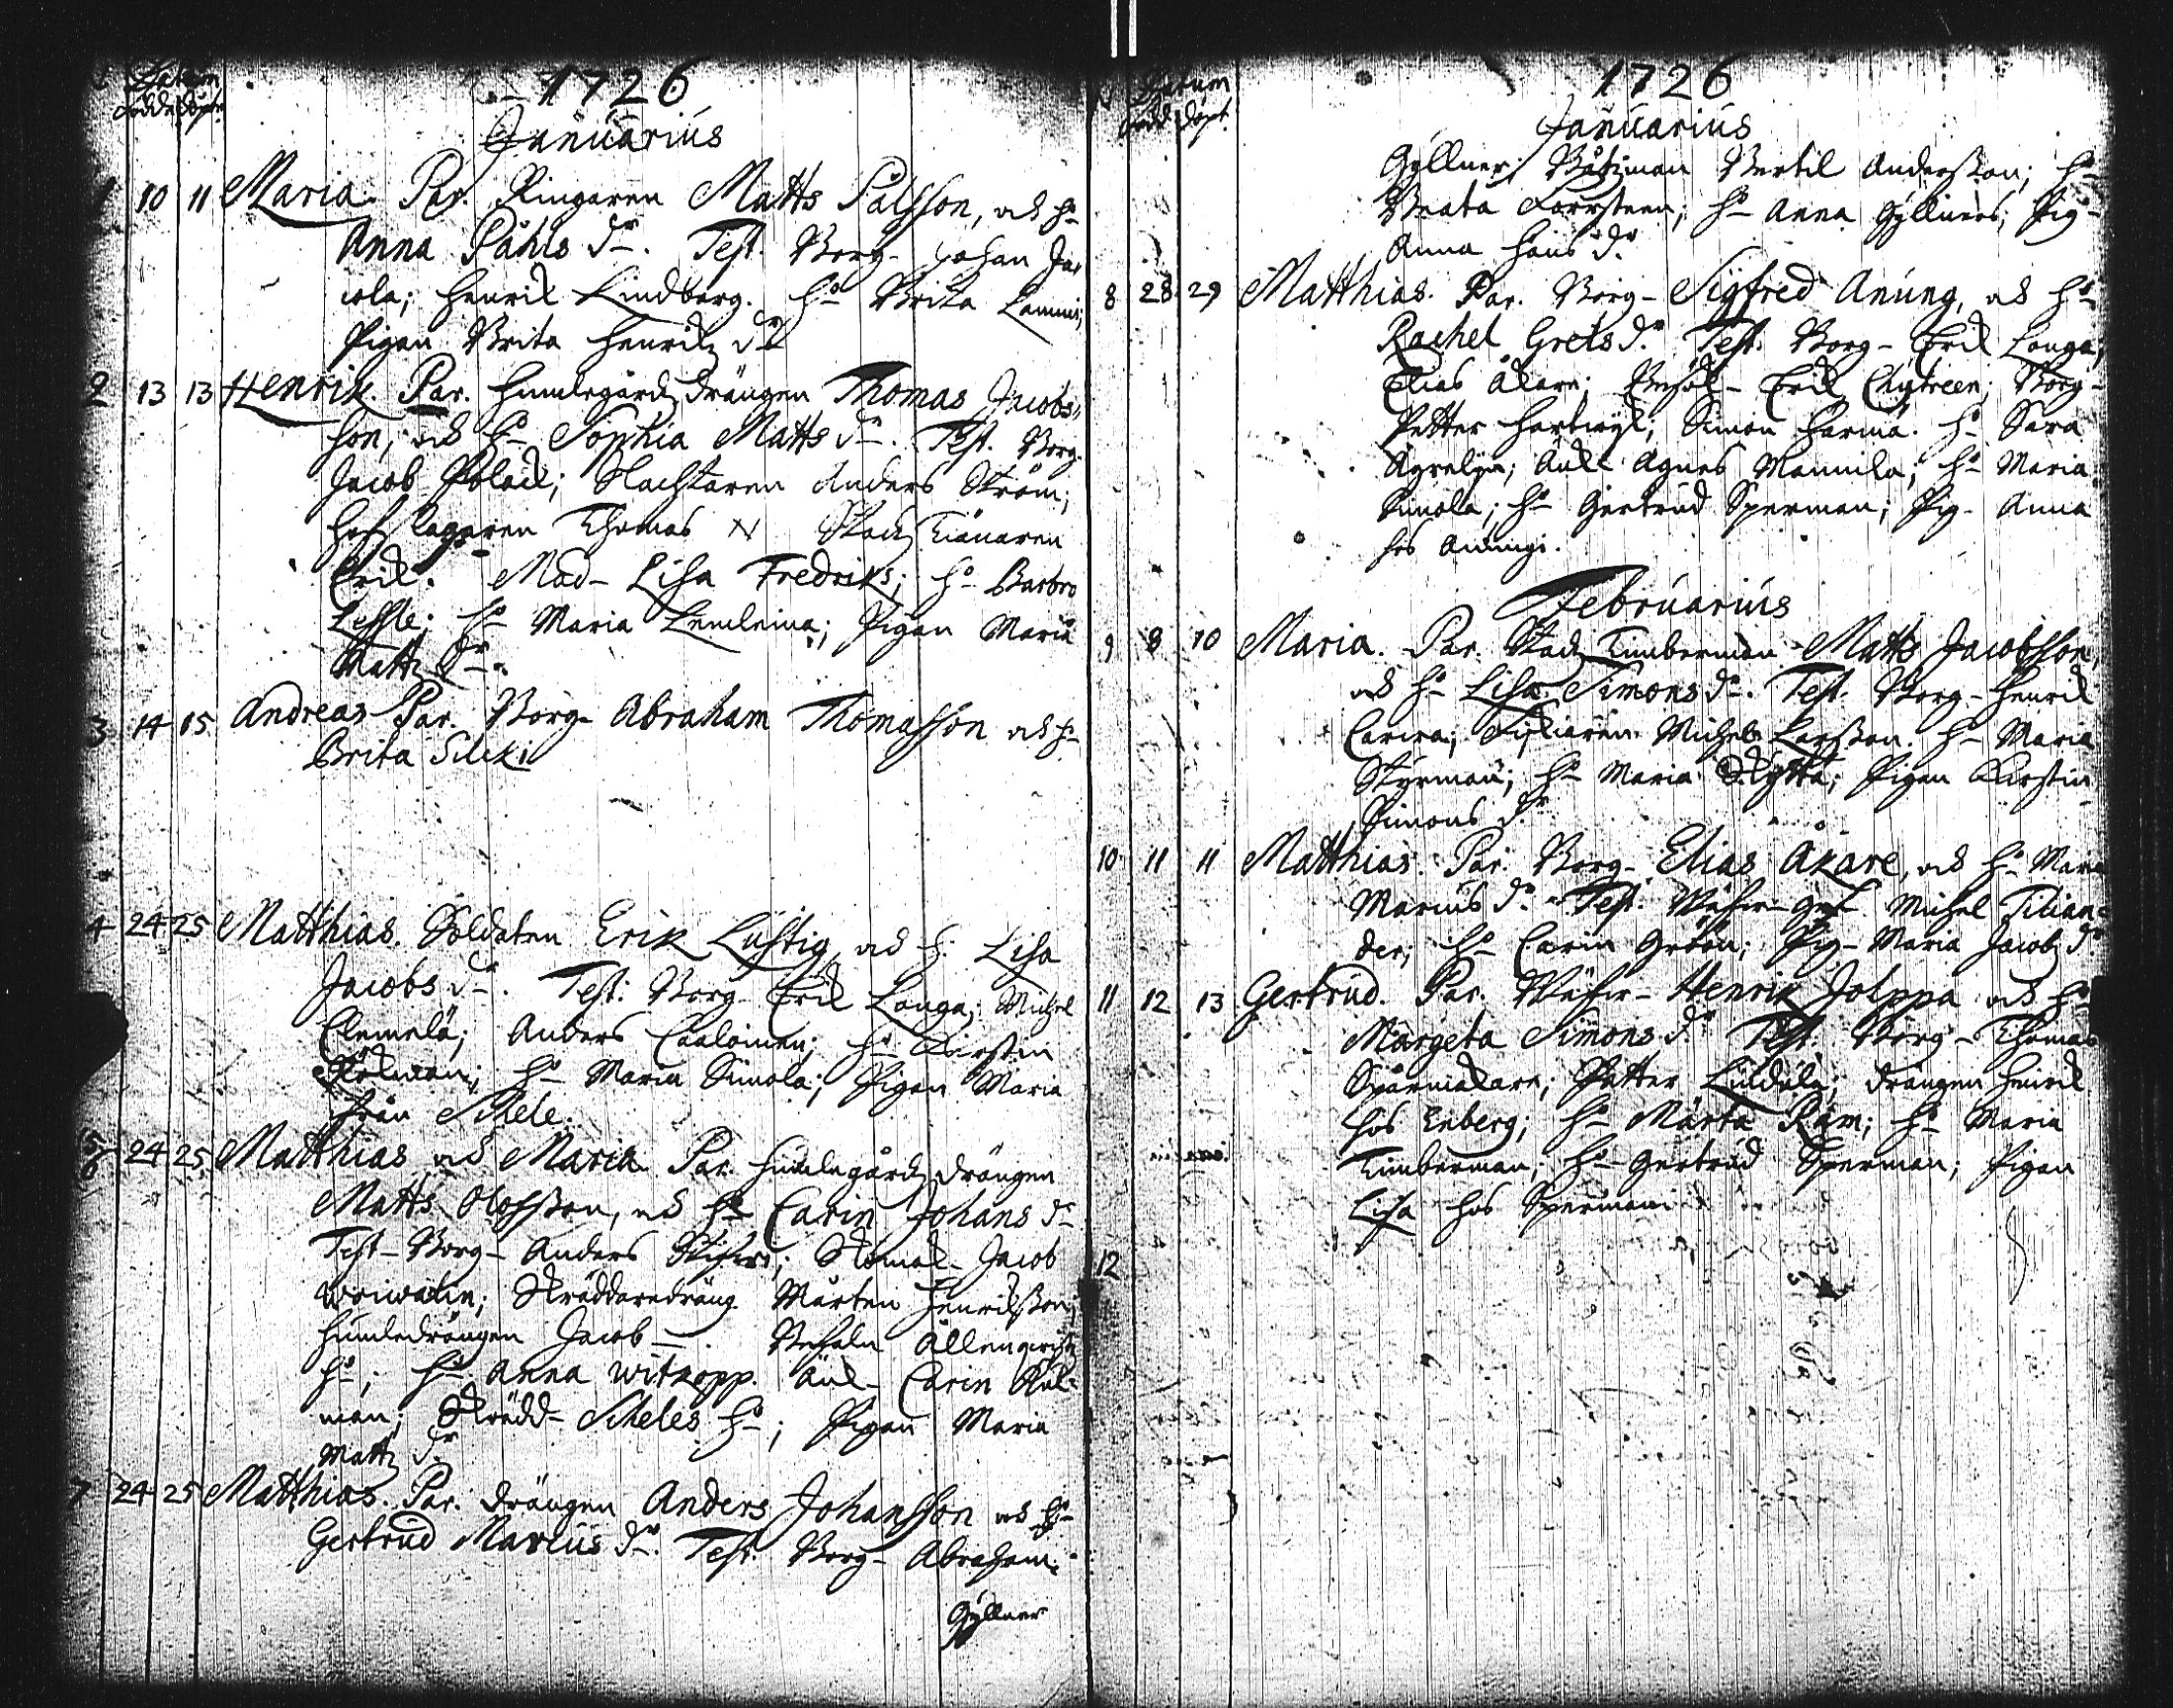 Datum
född döpt
1726
Januarius
1 10 11 Maria. Par. Ringaren Matts Pålsson, och h:o
Anna Påhls d:r. Test. Borg- Johan Ja
cola; Henrik Lindberg. h:o Brita Lammi;
Pigan Brita Henriks d:r
2 13 13 Henrik. Par. Humlegårdsdrängen Thomas Jacobs
son, och h:o Sophia Matts d:r. Test. Borg.
Jacob Polack; Slachtaren Anders Ström;
Hofslagaren Thomas N Stads Tiänaren
Erik. Mad- Lisa Fredriks; h:o Barbro
Leshle; h:o Maria Lemleina; Pigan Maria
Matts d:r.
3 14 15 Andreas Par. Borg- Abraham Thomasson och h:o
Brita Sileki
4 24 25 Matthias. Soldaten Erik Lustig, och h: Lisa
Jacobs d:r. Test: Borg- Erik Longa; Michel
Clemelä; Anders Caaloinen; h:o Kirstin
h:o Maria Simola; Pigan Maria
från Schele.
5/6 24 25 Matthias och Maria Par. Humlegårds drängen
Matts Olofsson, och h:o Carin Johans d:r
Test- Borg- Anders Skomak- Jacob
Woiwalin; Skräddaredräng Mårten Henriksson;
Humledrängen Jacob — Ållenqvists
h:o; h:o Anna Witkopp. Carin Kul-
man; Skrädd- Scheles h:o; Pigan Maria
Matts d:r
7 24 25 Matthias. Par. Drängen Anders Johansson och h:o
Gertrud Marcus d:r. Test. Borg- Abraham
Gyllner
Datum
född döpt
1726
Januarius
Gyllner; Båtzman Bertil Andersson; h:o
Beata Forsteen; h:o Anna Gyllners; Pig-
Anna Hans d:r
8 28 29 Matthias. Par. Borg- Sigfred Anung, och h:o
Rachel Grels d:r. Test. Borg- Erik Longa;
Elias Åkare; Erik Chytreen; Borg-
Petter Hartwyk; Simon Harma. h:o Sara
Agrelyn; Agnes Mannila; h:o Maria
Simola; h:o Gertrud Sperman; Pig- Anna
hos Anungi.
Februarius
9 8 10 Maria. Par. Stads Timberman Matts Jacobsson,
och h:o Lisa Simons d:r. Test. Borg- Henrik
Michel Larsson. h:o Maria
Styrman; h:o Maria Skytta; Pigan Kirstin
Simons d:r
10 11 11 Matthias. Par. Borg- Elias Åkare, och h:o Maria
Marcus d:r. Test. Michel Tilian-
der; h:o Carin Grön; Pig- Maria Jacobs d:r
11 12 13 Gertrud. Par. Henrik Jolppa och h:o
Margeta Simons d:r. Test. Borg- Thomas
Spårmakare; Petter Lindula; Drängen Henrik
hos Enberg; h:o Märta Ram; h:o Maria
Timberman; h:o Gertrud Sperman; Pigan
Lisa hos Spermani
12